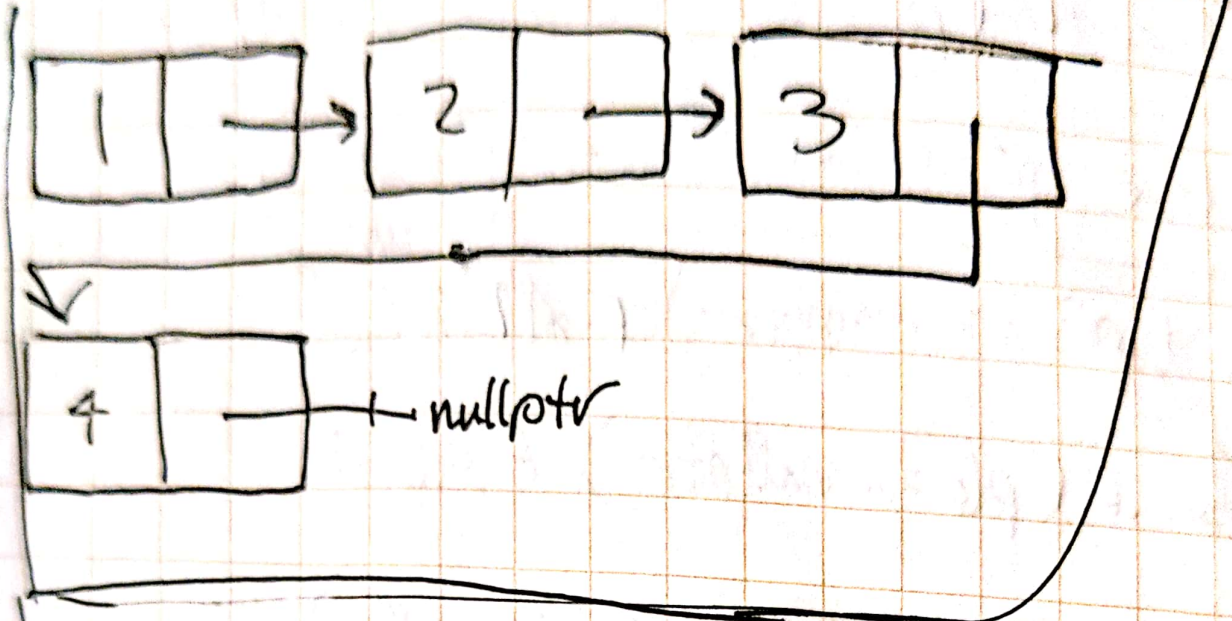 1 2 3
4 nullptr